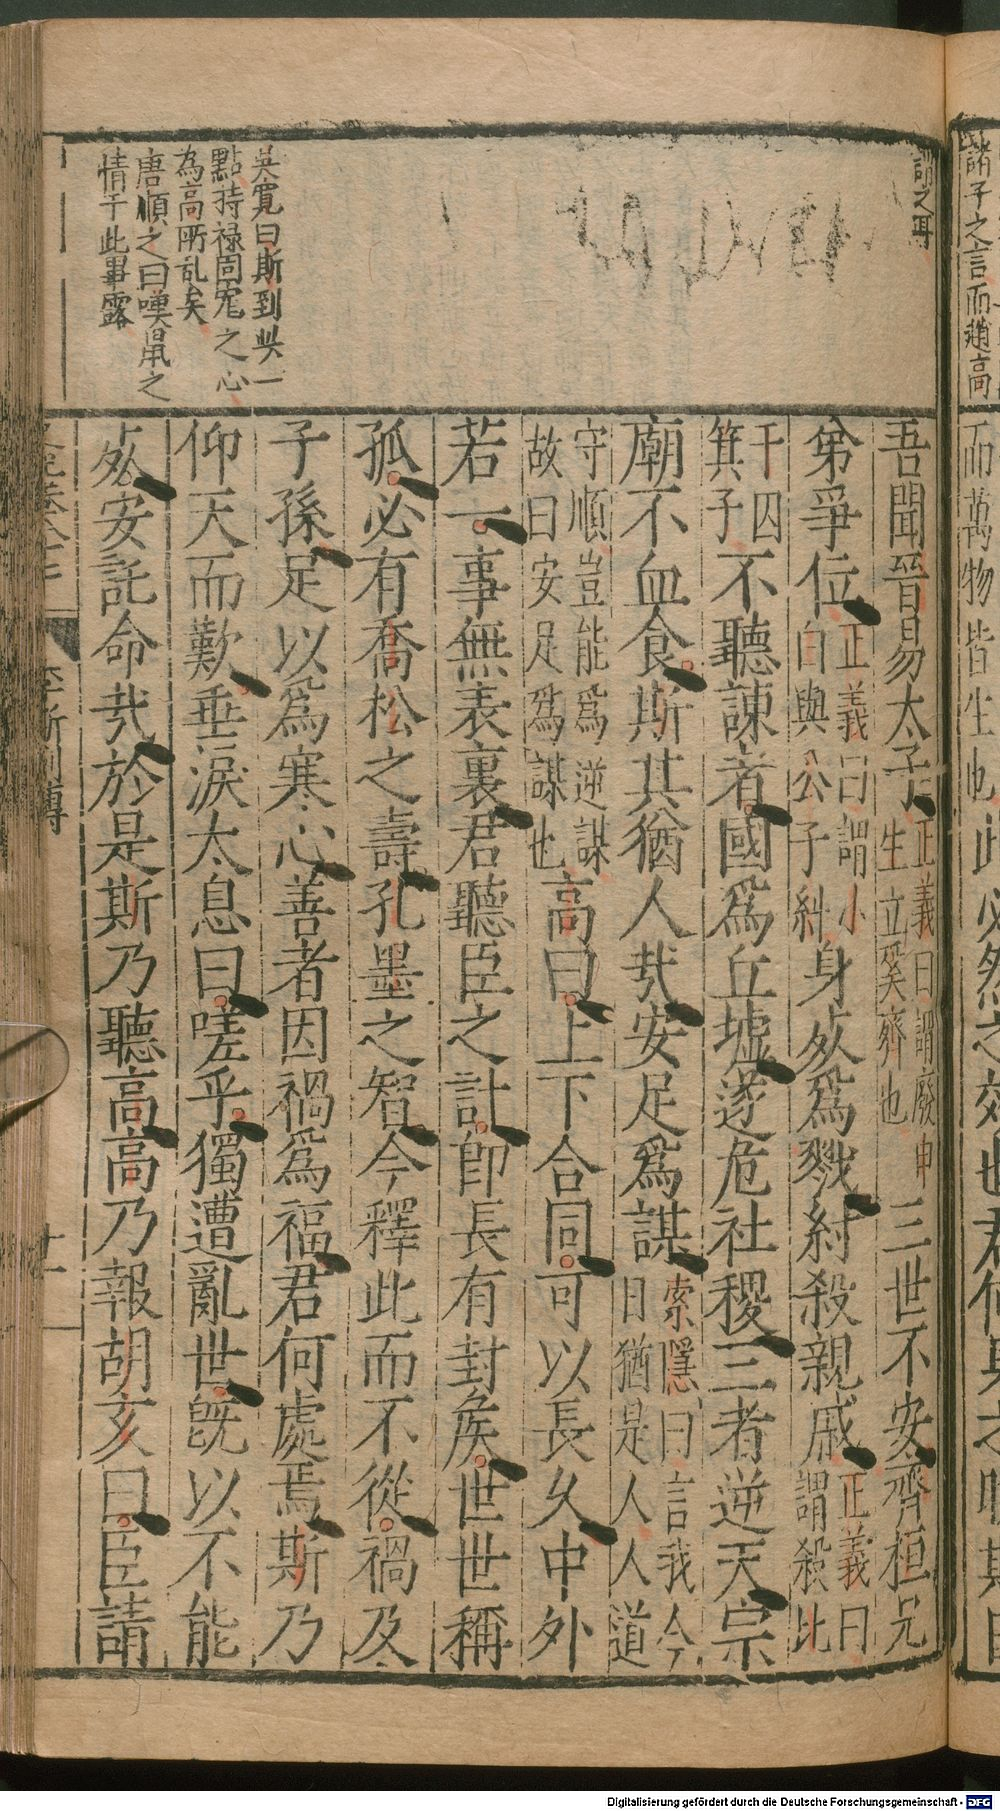 諸子之言而趙高
而萬物皆生也
謂之耳
吾聞晉易太子正義曰謂廢申生立奚齊也三世不安齊桓兄
弟爭位正義曰謂小白與公子糾身死爲戮紂殺親戚正義曰謂殺比
干囚箕子不聽諫者國爲丘墟遂危社稷三者逆天宗
廟不血食斯其猶人哉安足爲謀索隱曰言我今日猶是人人道
守順豈能爲逆謀故曰安足爲謀也高曰上下合同可以長久中外
若一事無表裏君聽臣之計即長有封侯世世稱
孤必有喬松之壽孔墨之智今釋此而不從禍及
子孫足以爲寒心善者因禍爲福君何處焉斯乃
仰天而歎垂淚太息曰嗟乎獨遭亂世旣以不能
死安託命哉於是斯乃聽高高乃報胡亥曰臣請
吳寬曰斯到此一
點持祿固寵之心
為高所乱矣
唐順之曰嘆鼠之
情于此畢露
李斯列傳
廿一
Digitalisierung gefördert durch die Deutsche Forschungsgemeinschaft - DFG